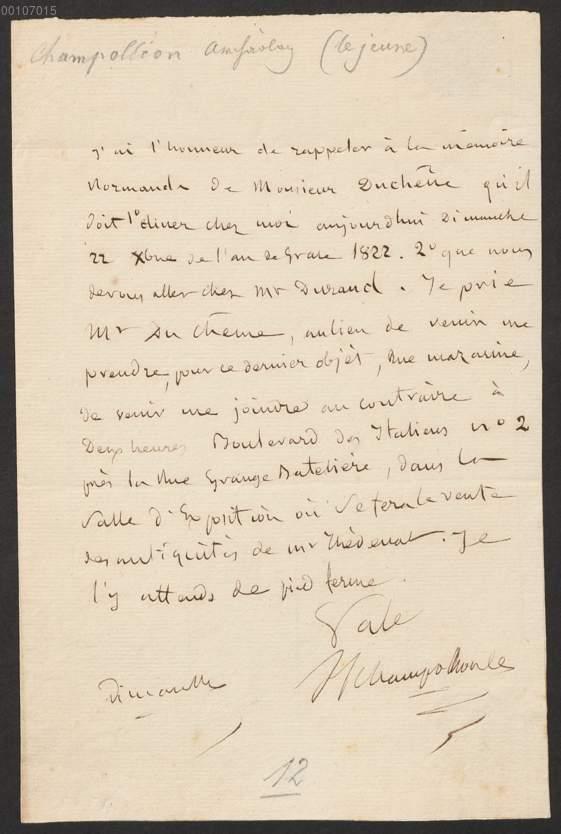 00107015
Champolléon (le jeune)
J'ai l'honneur de rappeler à la mémoire
Normande de Monsieur Duchêne qu'il
doit 1° diner chez moi aujourdhui Dimanche
22 Xbre de l'an de Grace 1822. 2° que nous
devons aller chez Mr Durand. Je prie
Mr Du chêne, aulieu de venir me
prendre, pour ce dernier objèt, Rue mazarine,
de venir me joindre au contraire à
Deux heures Boulevard des Italiens n° 2
près la Rue Grange Batelière, dans la
Salle d'Exposition où se fera la vente
des antiquités de mr Thédenat. Je
l'y attends de pied ferme.
Vale
Dimanche
12